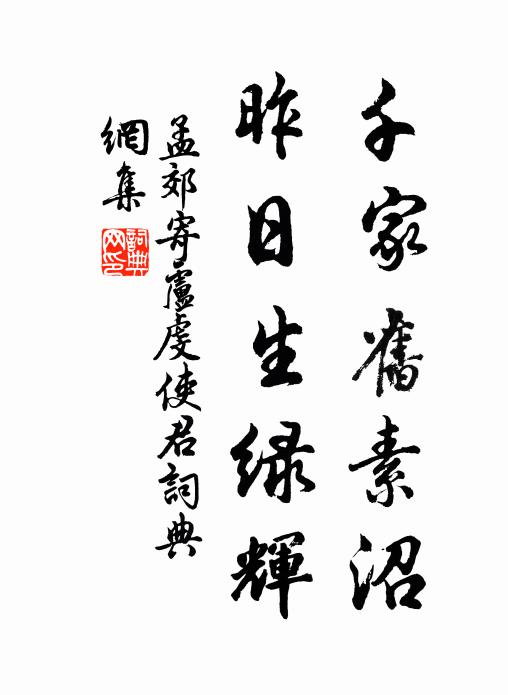 千家舊素沼
昨日生绿輝
孟郊寄盧虔使君詞典
網集
詞典網印